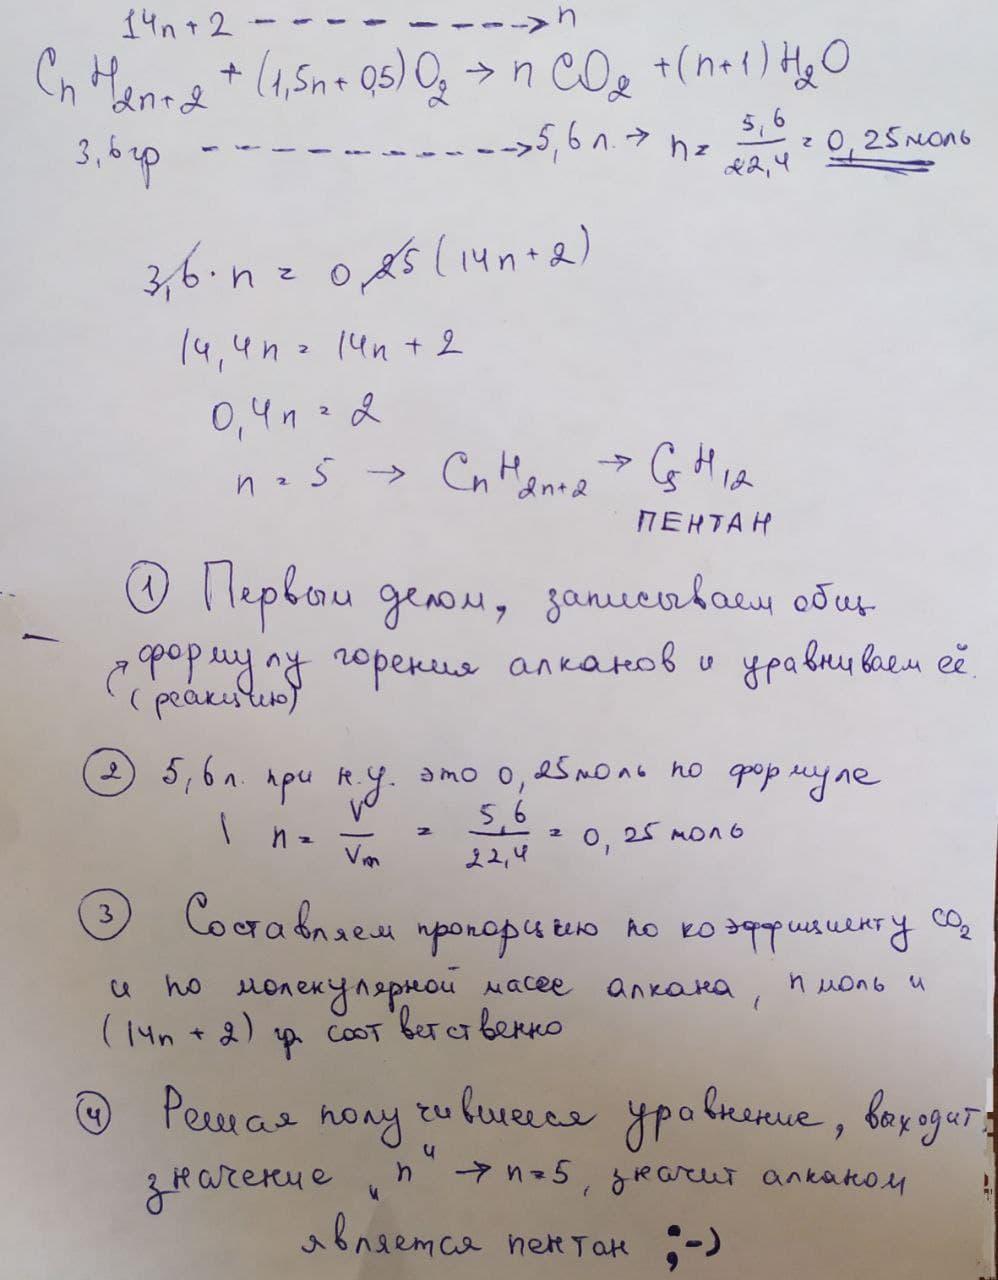 14n+2 ----------> n
CnH2n+2 + (1,5n+0,5)O2 → n CO2 + (n+1)H2O
3,6 гр ----------> 5,6 л. → n = 5,6/22,4 = 0,25 моль
3,6·n = 0,25(14n+2)
14,4n = 14n+2
0,4n = 2
n = 5 → CnH2n+2 → C5H12
ПЕНТАН
① Первым делом, записываем общ
формулу горения алканов и уравниваем её.
(реакцию)
② 5,6 л. при н.у. это 0,25 моль по формуле
n = V/Vm = 5,6/22,4 = 0,25 моль
③ Составляем пропорцию по коэффициенту CO2
и по молекулярной массе алкана, n моль и
(14n+2) гр. соответственно
④ Решая получившееся уравнение, выходит
значение „n" → n=5, значит алканом
является пентан ;-)